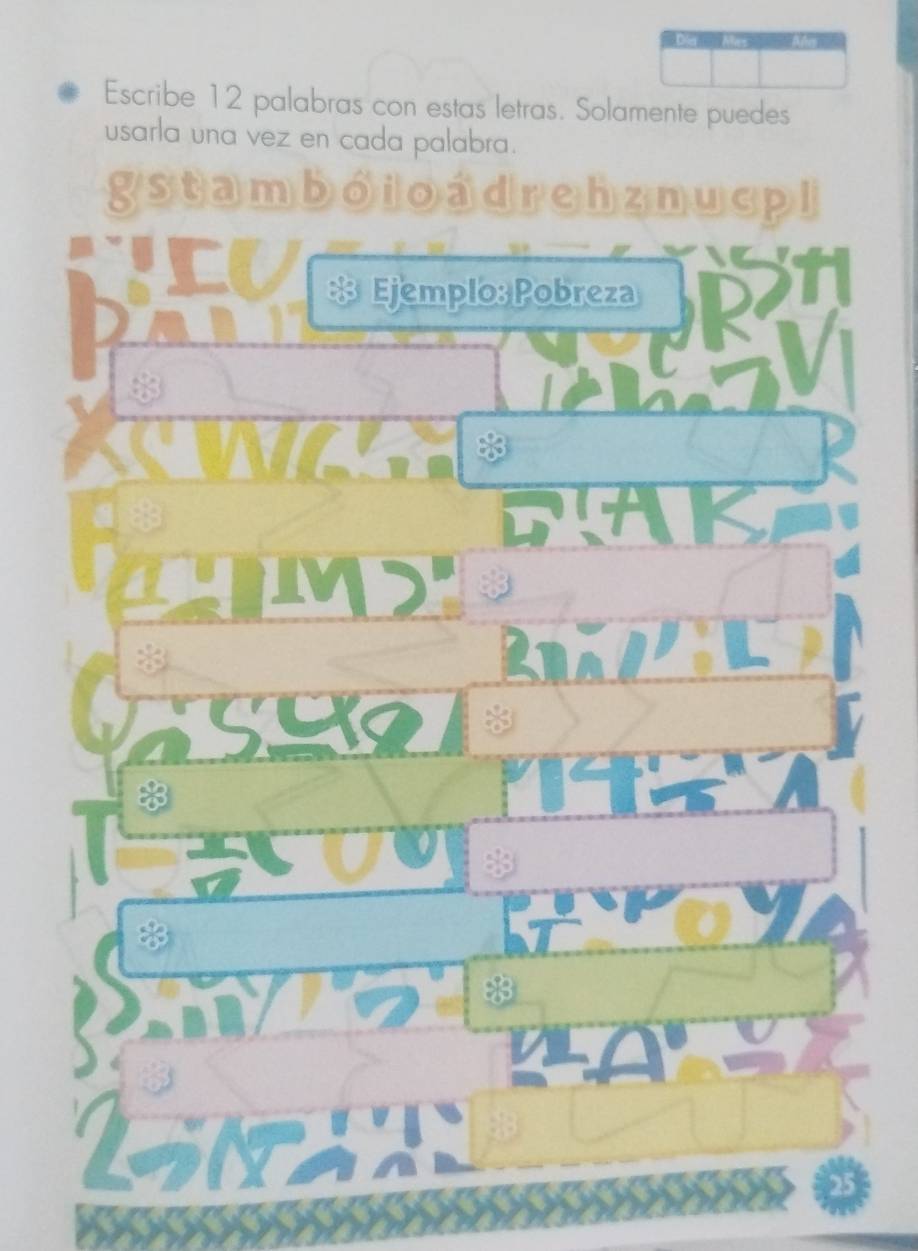 Día Mes Año
Escribe 12 palabras con estas letras. Solamente puedes
usarla una vez en cada palabra.
g s t a m b ó i l o á d r e h z n u c p l
Ejemplo: Pobreza
25